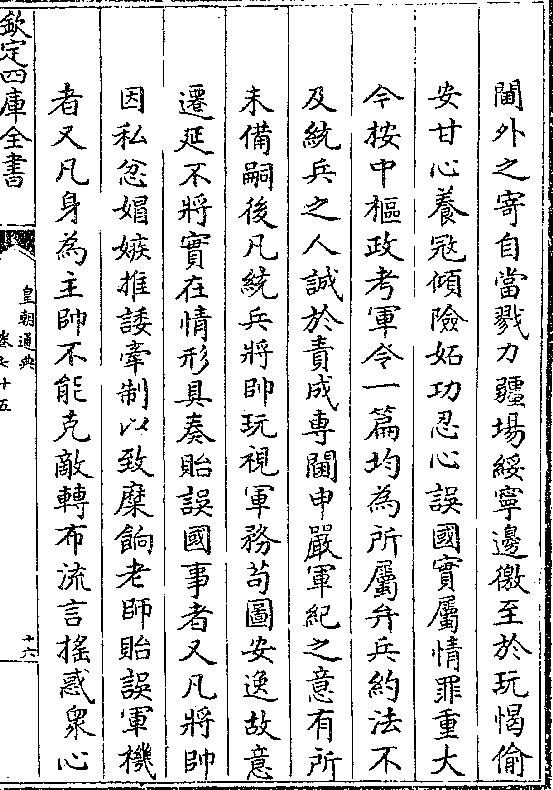 閫外之寄自當戮力疆場綏寧邊徼至於玩愒偷
安甘心養冦傾險妬功忍心誤國實屬情罪重大
今桉中樞政考軍令一篇均為所屬弁兵約法不
及統兵之人誠於責成專閫申嚴軍紀之意有所
未備嗣後凡統兵將帥玩視軍務苟圖安逸故意
遷延不將實在情形具奏貽誤國事者又凡將帥
因私忿媢嫉推諉牽制以致糜餉老師貽誤軍機
者又凡身為主帥不能克敵轉布流言搖惑衆心
欽定四庫全書
皇朝通典
卷七十五
十六